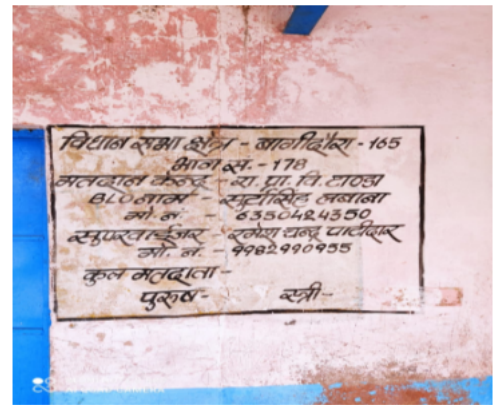 विधान सभा क्षेत्र - बागीदौरा - 165
भाग सं. - 178
मतदान केन्द्र - रा. प्रा. वि. टाण्डा
BLO नाम - सूर्यासिंह लबाना
मो. नं. - 6350424350
सुपरवाईजर - रमेश चन्द्र पाटीदार
मो. नं. - 9982990955
कुल मतदाता -
पुरुष - स्त्री -